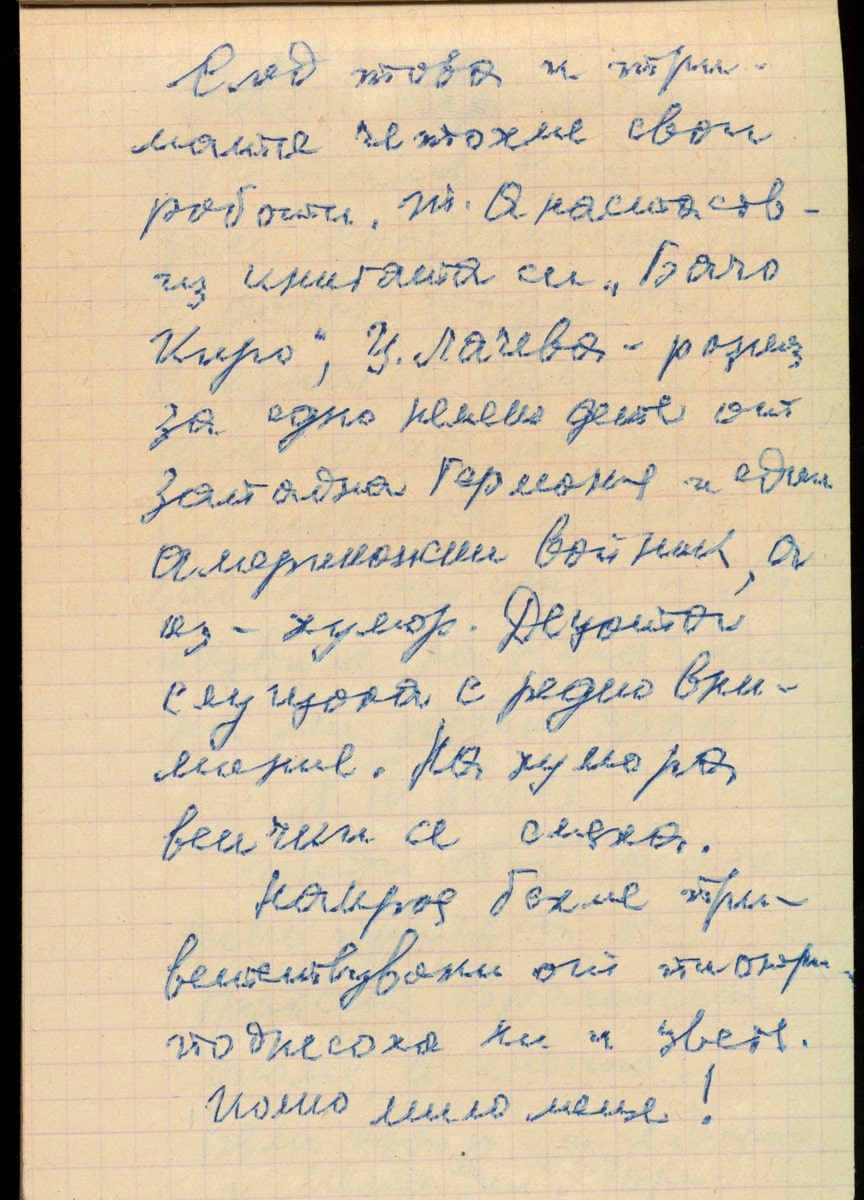 След това и три-
мата четохме свои
работи. т. Анастасов -
из книгата си „Бачо
Киро“, Ц. Лачева - разказ
за едно немско дете от
Западна Германия и един
американски войник, а
аз - хумор. Децата
слушаха с рядко вни-
мание. На хумора
всички се смяха.
Накрая бяхме при-
ветствувани от пионери,
поднесоха ни и цветя.
Колко мило беше!